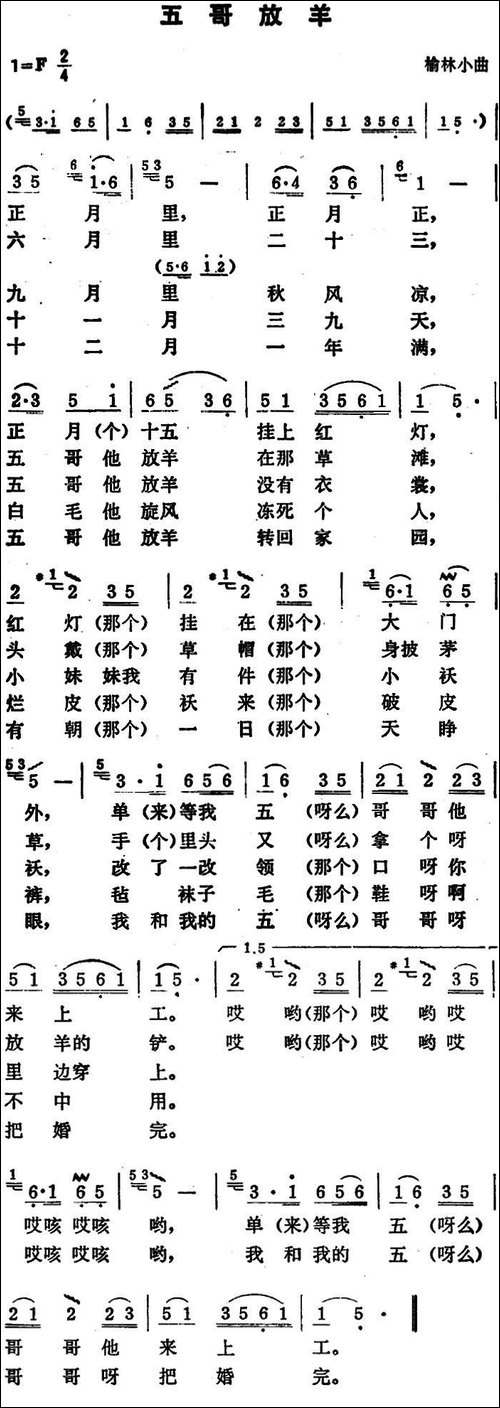 五哥放羊
1=F 2/4 榆林小曲
(5 3·i 65 | 1 6 35 | 21 2 23 | 51 3561 | 15·)
35 6 1·6 | 53 5 — | 6·4 36 | 6 1 — |
正 月 里, 正 月 正,
六 月 里 二 十 三,
(5·6 i2)
九 月 里 秋 风 凉,
十 一 月 三 九 天,
十 二 月 一 年 满,
2·3 5 i | 65 36 | 51 3561 | 1 5· |
正 月 (个) 十五 挂上 红 灯,
五 哥 他 放羊 在那 草 滩,
五 哥 他 放羊 没有 衣 裳,
白 毛 他 旋风 冻死 个 人,
五 哥 他 放羊 转回 家 园,
2 #1 2 35 | 2 #1 2 35 | 1 6·1 65 |
红 灯 (那个) 挂 在 (那个) 大 门
头 戴 (那个) 草 帽 (那个) 身披 茅
小 妹 妹我 有 件 (那个) 小 袄
烂 皮 (那个) 袄 来 (那个) 破 皮
有 朝 (那个) 一 日 (那个) 天 睁
53 5 — | 5 3·i 656 | 16 35 | 21 2 23 |
外, 单 (来) 等我 五 (呀么) 哥 哥 他
草, 手 (个) 里头 又 (呀么) 拿 个 呀
袄, 改 了 一改 领 (那个) 口 呀 你
裤, 毡 袜子 毛 (那个) 鞋 呀 啊
眼, 我 和 我的 五 (呀么) 哥 哥 呀
1.5
51 3561 | 15· | 2 #1 2 35 | 2 #1 2 35 |
来 上 工。 哎 哟 (那个) 哎 哟 哎
放 羊的 铲。 哎 哟 (那个) 哎 哟 哎
里 边穿 上。
不 中 用。
把 婚 完。
1 6·1 65 | 53 5 — | 5 3·i 656 | 16 35 |
哎咳 哎咳 哟, 单 (来) 等我 五 (呀么)
哎咳 哎咳 哟, 我 和 我的 五 (呀么)
21 2 23 | 51 3561 | 1 5· ‖
哥 哥 他 来 上 工。
哥 哥 呀 把 婚 完。